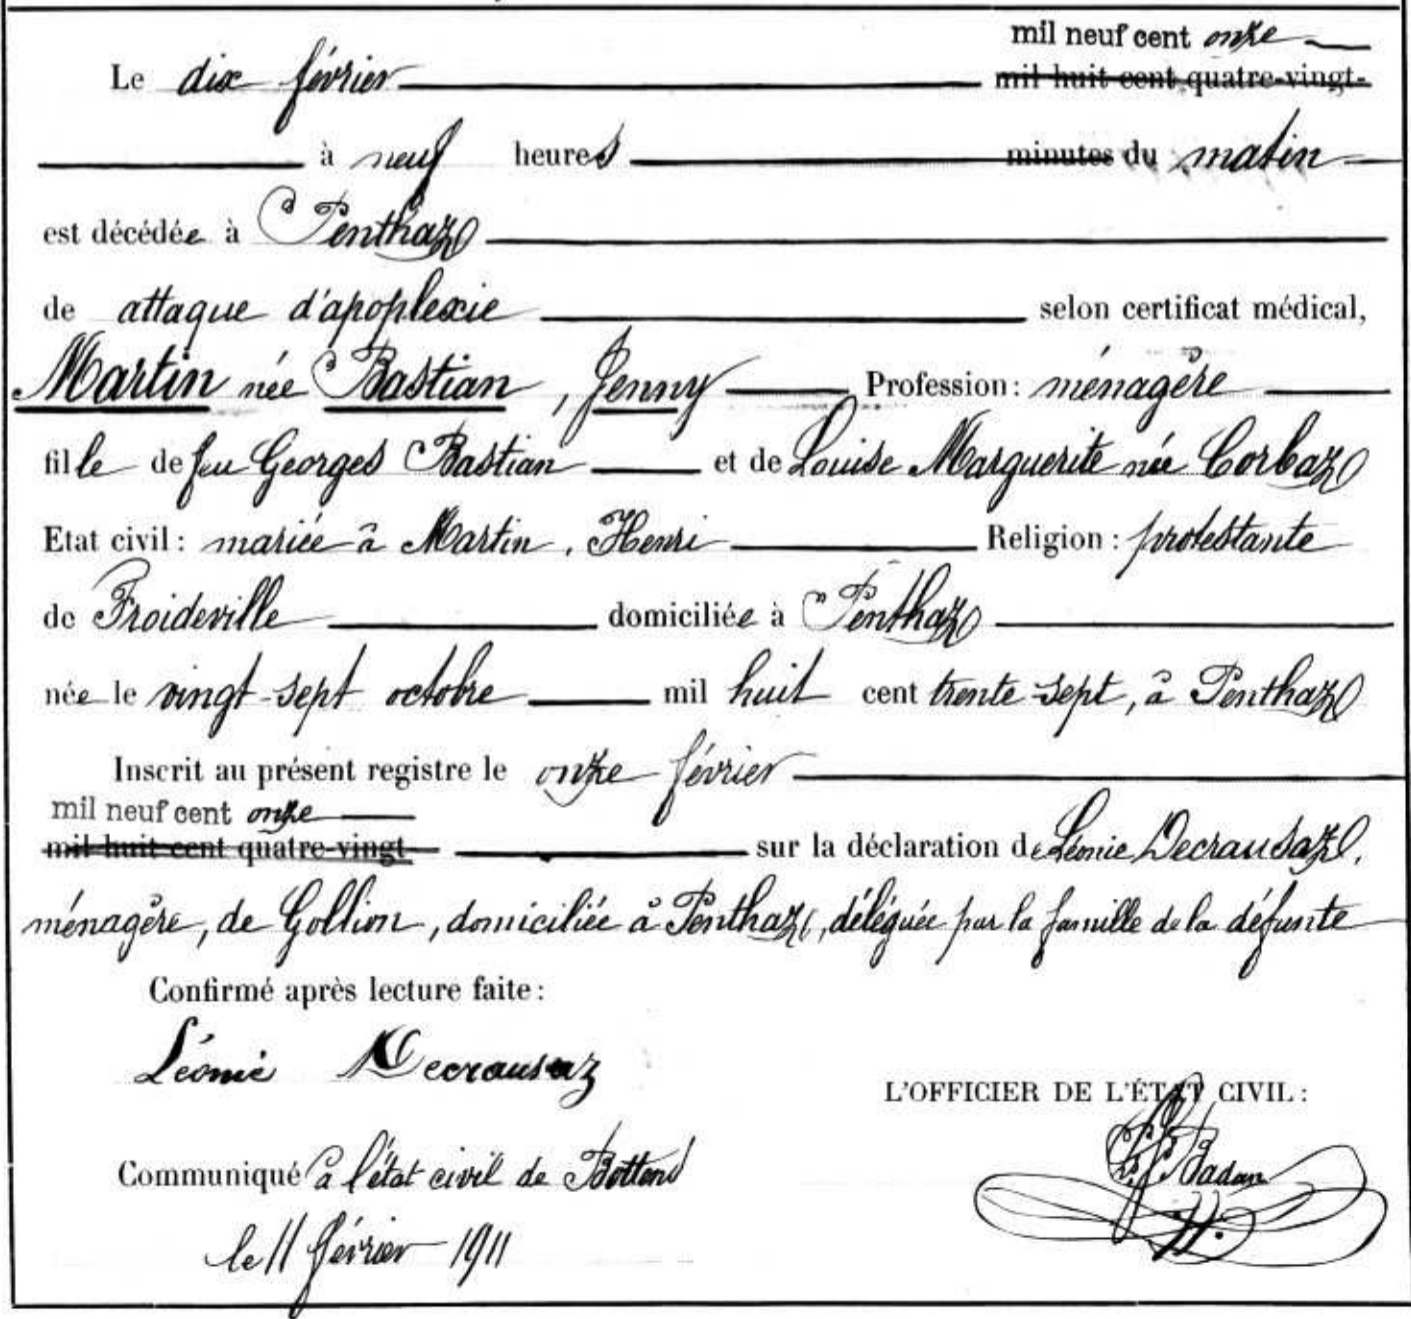 mil neuf cent onze
Le dix février mil huit cent quatre-vingt-
à neuf heures minutes du matin
est décédée à Penthaz
de attaque d'apoplexie selon certificat médical,
Martin née Bastian, Jenny Profession: ménagère
fille de feu Georges Bastian et de Louise Marguerite née Corbaz
Etat civil: mariée à Martin, Henri Religion: protestante
de Froideville domiciliée à Penthaz
née le vingt-sept octobre mil huit cent trente-sept, à Penthaz
Inscrit au présent registre le onze février
mil neuf cent onze
mil huit cent quatre-vingt sur la déclaration de Léonie Decrausaz,
ménagère, de Gollion, domiciliée à Penthaz, déléguée par la famille de la défunte
Confirmé après lecture faite:
Léonie Decrausaz
L'OFFICIER DE L'ÉTAT CIVIL:
Badan
Communiqué à l'état civil de Bottens
le 11 février 1911